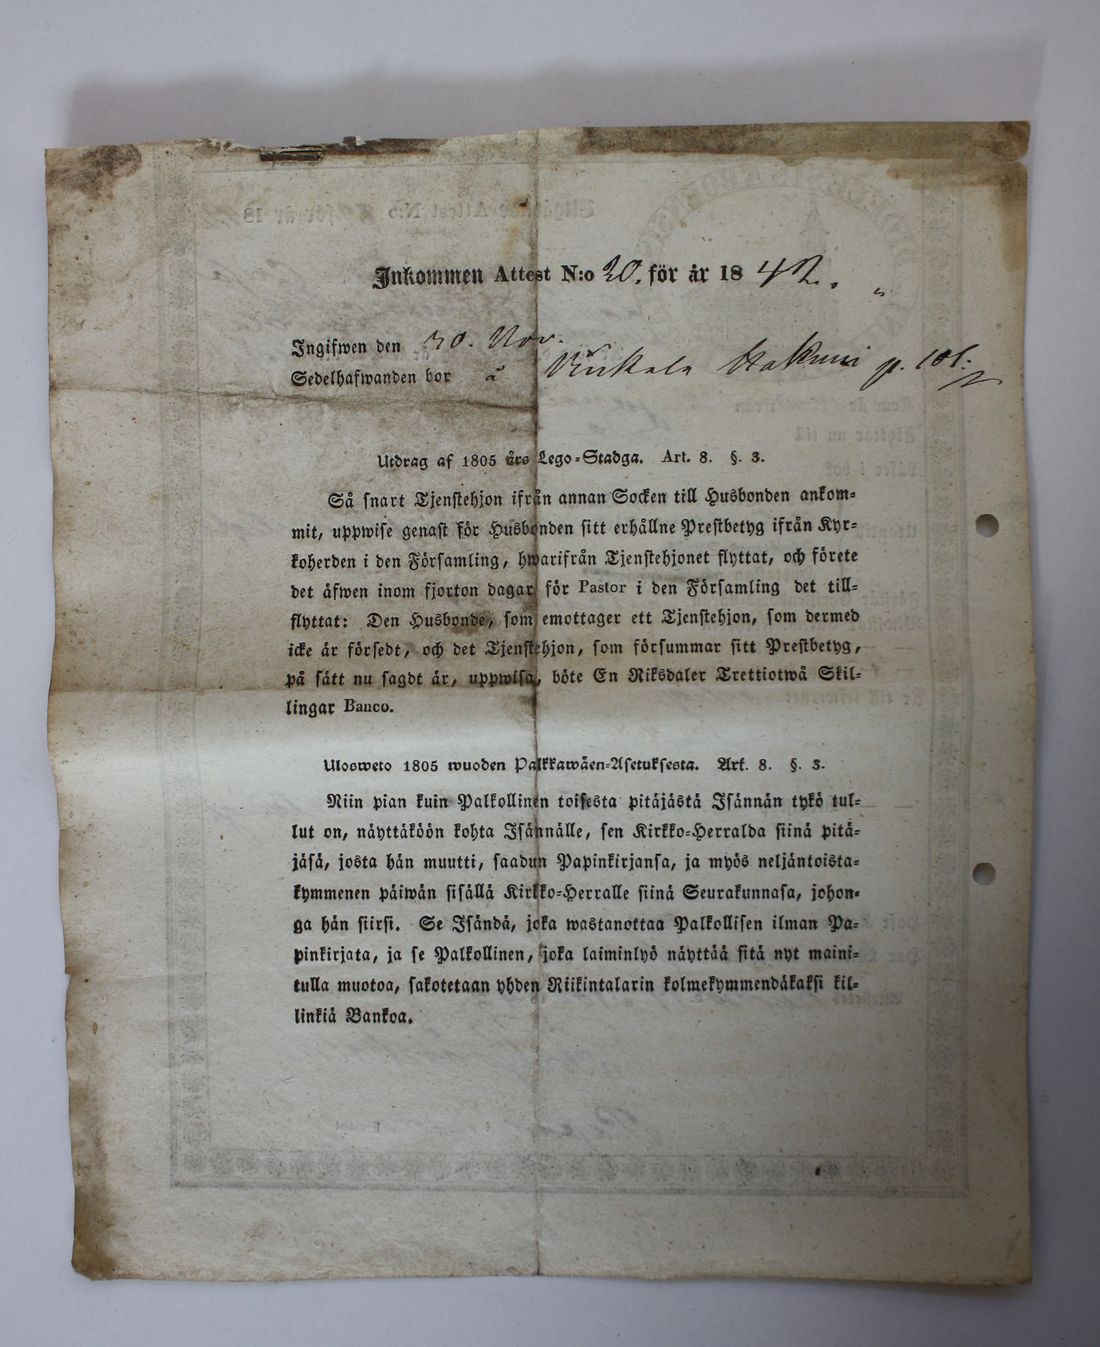 Inkommen Attest N:o 20. för år 1842.
Ingifwen den 20. Nov.
Sedelhafwanden bor å p. 101.
Utdrag af 1805 års Lego-Stadga. Art. 8. §. 3.
Så snart Tjenstehjon ifrån annan Socken till Husbonden ankom-
mit, uppwise genast för Husbonden sitt erhållne Prestbetyg ifrån Kyr-
koherden i den Församling, hwarifrån Tjenstehjonet flyttat, och förete
det äfwen inom fjorton dagar för Pastor i den Församling det till-
flyttat: Den Husbonde, som emottager ett Tjenstehjon, som dermed
icke är försedt, och det Tjenstehjon, som försummar sitt Prestbetyg,
på sätt nu sagdt är, uppwisa, böte En Riksdaler Trettiotwå Skil-
lingar Banco.
Ulosweto 1805 wuoden Palkkawäen-Asetuksesta. Art. 8. §. 3.
Niin pian kuin Palkollinen toisesta pitäjästä Isännän tykö tul-
lut on, näyttäköön kohta Isännälle, sen Kirkko-Herralda siinä pitä-
jäsä, josta hän muutti, saadun Papinkirjansa, ja myös neljäntoista-
kymmenen päiwän sisällä Kirkko-Herralle siinä Seurakunnasa, johon-
ga hän siirsi. Se Isändä, joka wastanottaa Palkollisen ilman Pa-
pinkirjata, ja se Palkollinen, joka laiminlyö näyttää sitä nyt maini-
tulla muotoa, sakotetaan yhden Riikintalarin kolmekymmendäkaksi kil-
linkiä Bankoa.